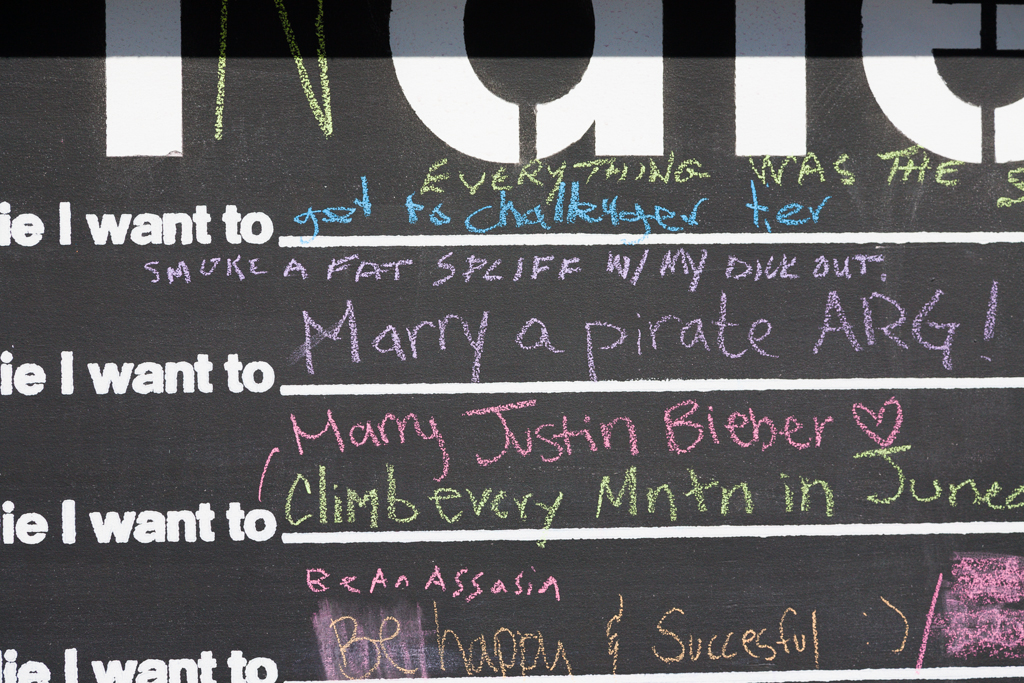 N
EVERYTHING WAS THE S
ie I want to get to challenger tier
SMOKE A FAT SPLIFF W/ MY DICK OUT.
ie I want to Marry a pirate ARG!
Marry Justin Bieber ♡
ie I want to Climb every Mntn in Junea
Be An Assasin
die I want to Be happy & Succesful :)